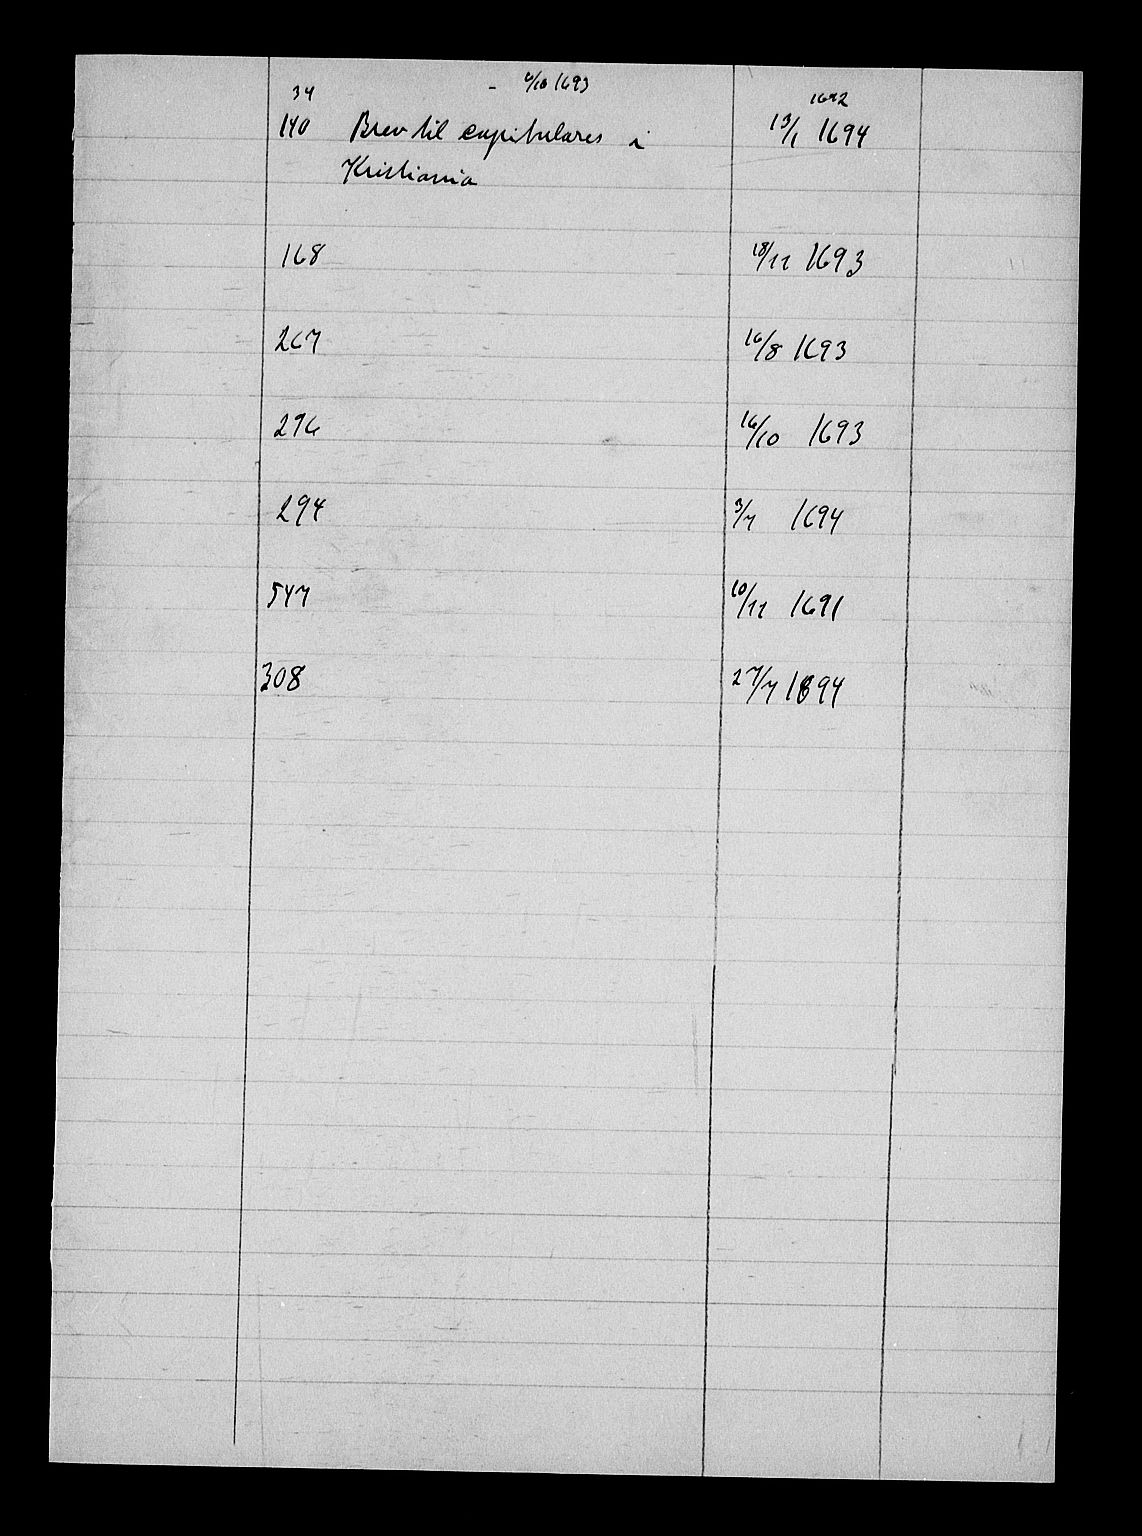 34 - 6/10 1693 1692
140 Brev til capitulares i 13/1 1694
Kristiania
168 18/11 1693
267 16/8 1693
276 16/10 1693
294 3/7 1694
547 10/11 1691
308 27/7 1694